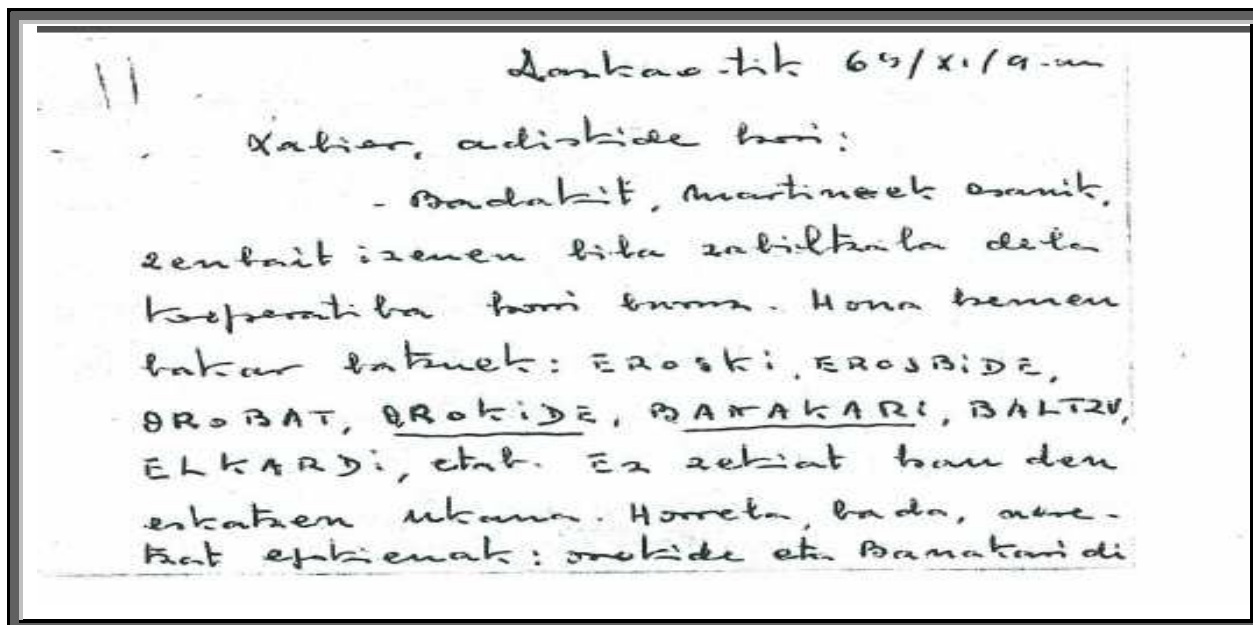 Lazkao-tik 69/XI/9-an
Xabier, adiskide hori:
- Badakit, Martineek esanik,
zenbait izenen bila zabiltzala dela
kooperatiba hori buruz. Hona hemen
bakar batzuek: EROSKi, EROSBiDE,
OROBAT, OROKiDE, BANAKARi, BALTZU,
ELKARDi, etab. Ez zekiat hau den
eskatzen ukana. Horrela, bada, nere-
tzat egokienak: orokide eta Banakari di